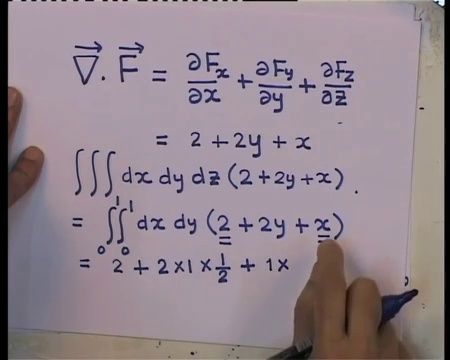 ∇⃗ . F⃗ = ∂Fx/∂x + ∂Fy/∂y + ∂Fz/∂z
= 2 + 2y + x
∫∫∫ dx dy dz (2 + 2y + x) .
= ∫₀¹∫₀¹ dx dy (2 + 2y + x)
= 2 + 2×1×1/2 + 1×